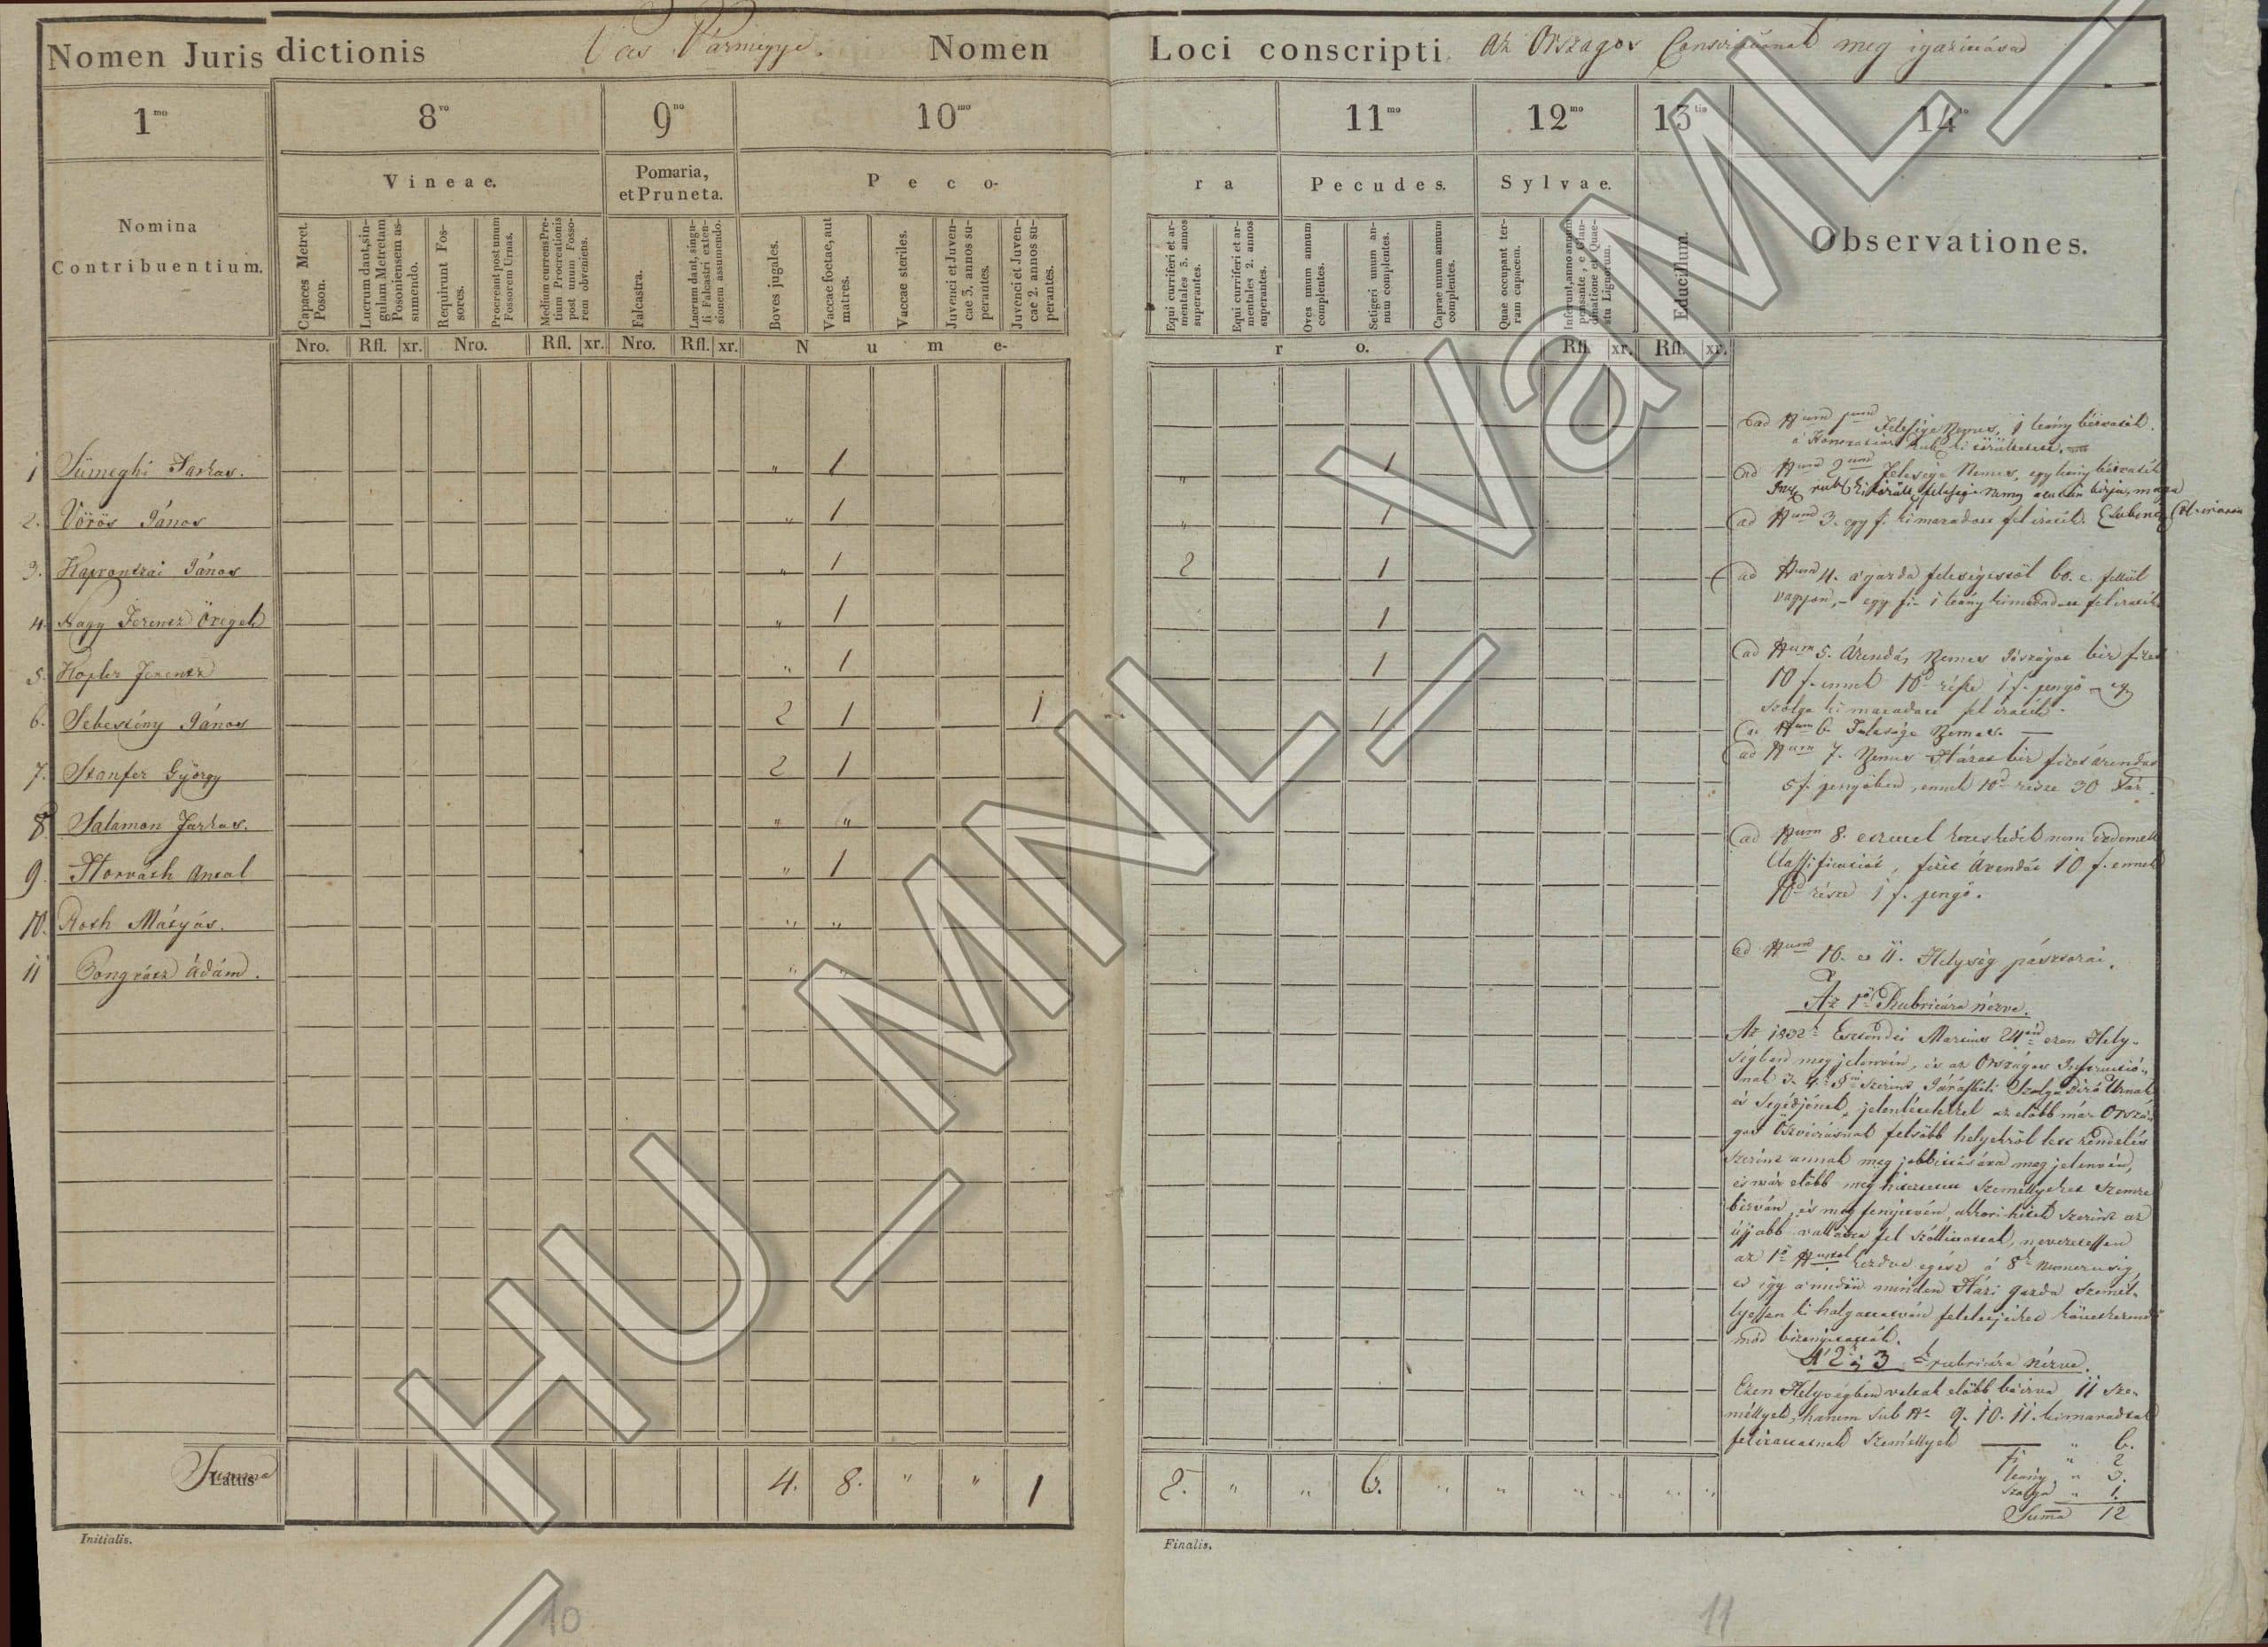 Nomen Jurisdictionis Vas Vármegye. Nomen Loci conscripti Az Országos Conscriptiónak meg igazittása
1mo 8vo 9no 10mo 11mo 12mo 13tio 14to
Nomina Contribuentium.
Vineae.
Pomaria, et Pruneta.
Peco-
ra
Pecudes.
Sylvae.
Educillum.
Observationes.
Capaces Metret. Poson.
Lucrum dant, singulam Metretam Posoniensem assumendo.
Requirunt Fossores.
Procreant post unum Fossorem Urnas.
Medium currens Pretium Procreationis post unum Fossorem obveniens.
Falcastra.
Lucrum dant, singuli Falcastri extensionem assumendo.
Boves jugales.
Vaccae foetae, aut matres.
Vaccae steriles.
Juvenci et Juvencae 3. annos superantes.
Juvenci et Juvencae 2. annos superantes.
Equi curriferi et armentales 3. annos superantes.
Equi curriferi et armentales 2. annos superantes.
Oves unum annum complentes.
Setigeri unum annum complentes.
Caprae unum annum complentes.
Quae occupant terram capacem.
Nro. Rfl. xr. Nro. Rfl. xr. Nro. Rfl. xr. N u m e-
r o. Rfl. xr. Rfl. xr.
1 Sümeghi Farkas. " 1 " 1
2. Vörös János " 1 " 1
3. Kapronczai János " 1 2 1
4. Nagy Ferencz Öregeb " 1 1
5. Kopler Ferencz " 1 1
6. Sebestény János 2 1 1 1
7. Stanfer György 2 1
8 Salamon Farkas. " "
9 Horváth Antal " 1
10. Roth Mátyás. " "
11 Pongrátz Ádám. " "
ad Num 1um Felesége Nemes, 1 leány béiratik.
ad Num 2um Felesége Nemes, egy leány béiratik
ad Num 3. egy f. kimaradott fel iratik
ad Num 4. a' gazda feleségestöl 60. e. fellül
vagyon, – egy fi – 1 leány kimaradott feliratik
ad Num 5. Árendás Nemes Jószágot bir fizet
10 f. ennek 10d része 1 f. pengö – egy
szolga ki maradott fel iratik.
ad Num 6. Felesége Nemes. —
ad Num 7. Nemes Házat bir fizet árendát
5 f. pengöben, ennek 10d része 30 xár.
ad Num 8. eczettel kereskedik nem érdemell
Classificatiót, fizet Árendát 10 f. ennek
10d része 1 f. pengö.
ad Num 10. es 11. Helység pásztorai.
Az 1sö Rubricára nézve.
Az 1832k Esztendei Martius 24én ezen Hely-
ségben megjelenvén, és az Országos Instructió-
nak 3. 4. § szerint Járásbéli Szolga Biró Urnak
és Segédjének jelenlétekkel az elöbb már Orszá-
gos Öszveirásnak felsöbb helyekröl lett rendelés
szerint annak meg jobbittására meg jelenvén,
és már elöbb meg hitezett Személlyeket szemre
hiván, és meg fenyitvén, akkori hitek szerint az
újjabb vallásra fel szóllittattak, nevezetessen
az 1sö Numtol kezdve egész a' 8k Numerusig,
es igy a' midön minden Házi gazda személ-
lyessen ki halgattatván feleleteiket következendö
mód bizonyitották.
A' 2, 3 k rubricára nézve.
Ezen Helységben voltak elöbb béirva 11 Sze-
méllyek, hanem Sub No 9. 10. 11. kimaradtak
feliratattnak személlyek — " 6.
fi " 2
leány " 3.
szolga " 1.
Suma 12
Summa
Latus 4. 8. " " 1 2. " " 6. " " " " " "
Initialis.
Finalis.
10
11
HU_MNL_VaML_